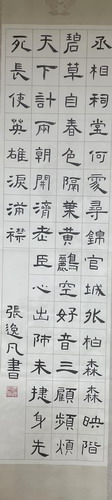 丞相祠堂何處尋錦官城外柏森森映階
碧草自春色隔葉黃鸝空好音三顧頻煩
天下計兩朝開濟老臣心出師未捷身先
死長使英雄淚滿襟
張逸凡書